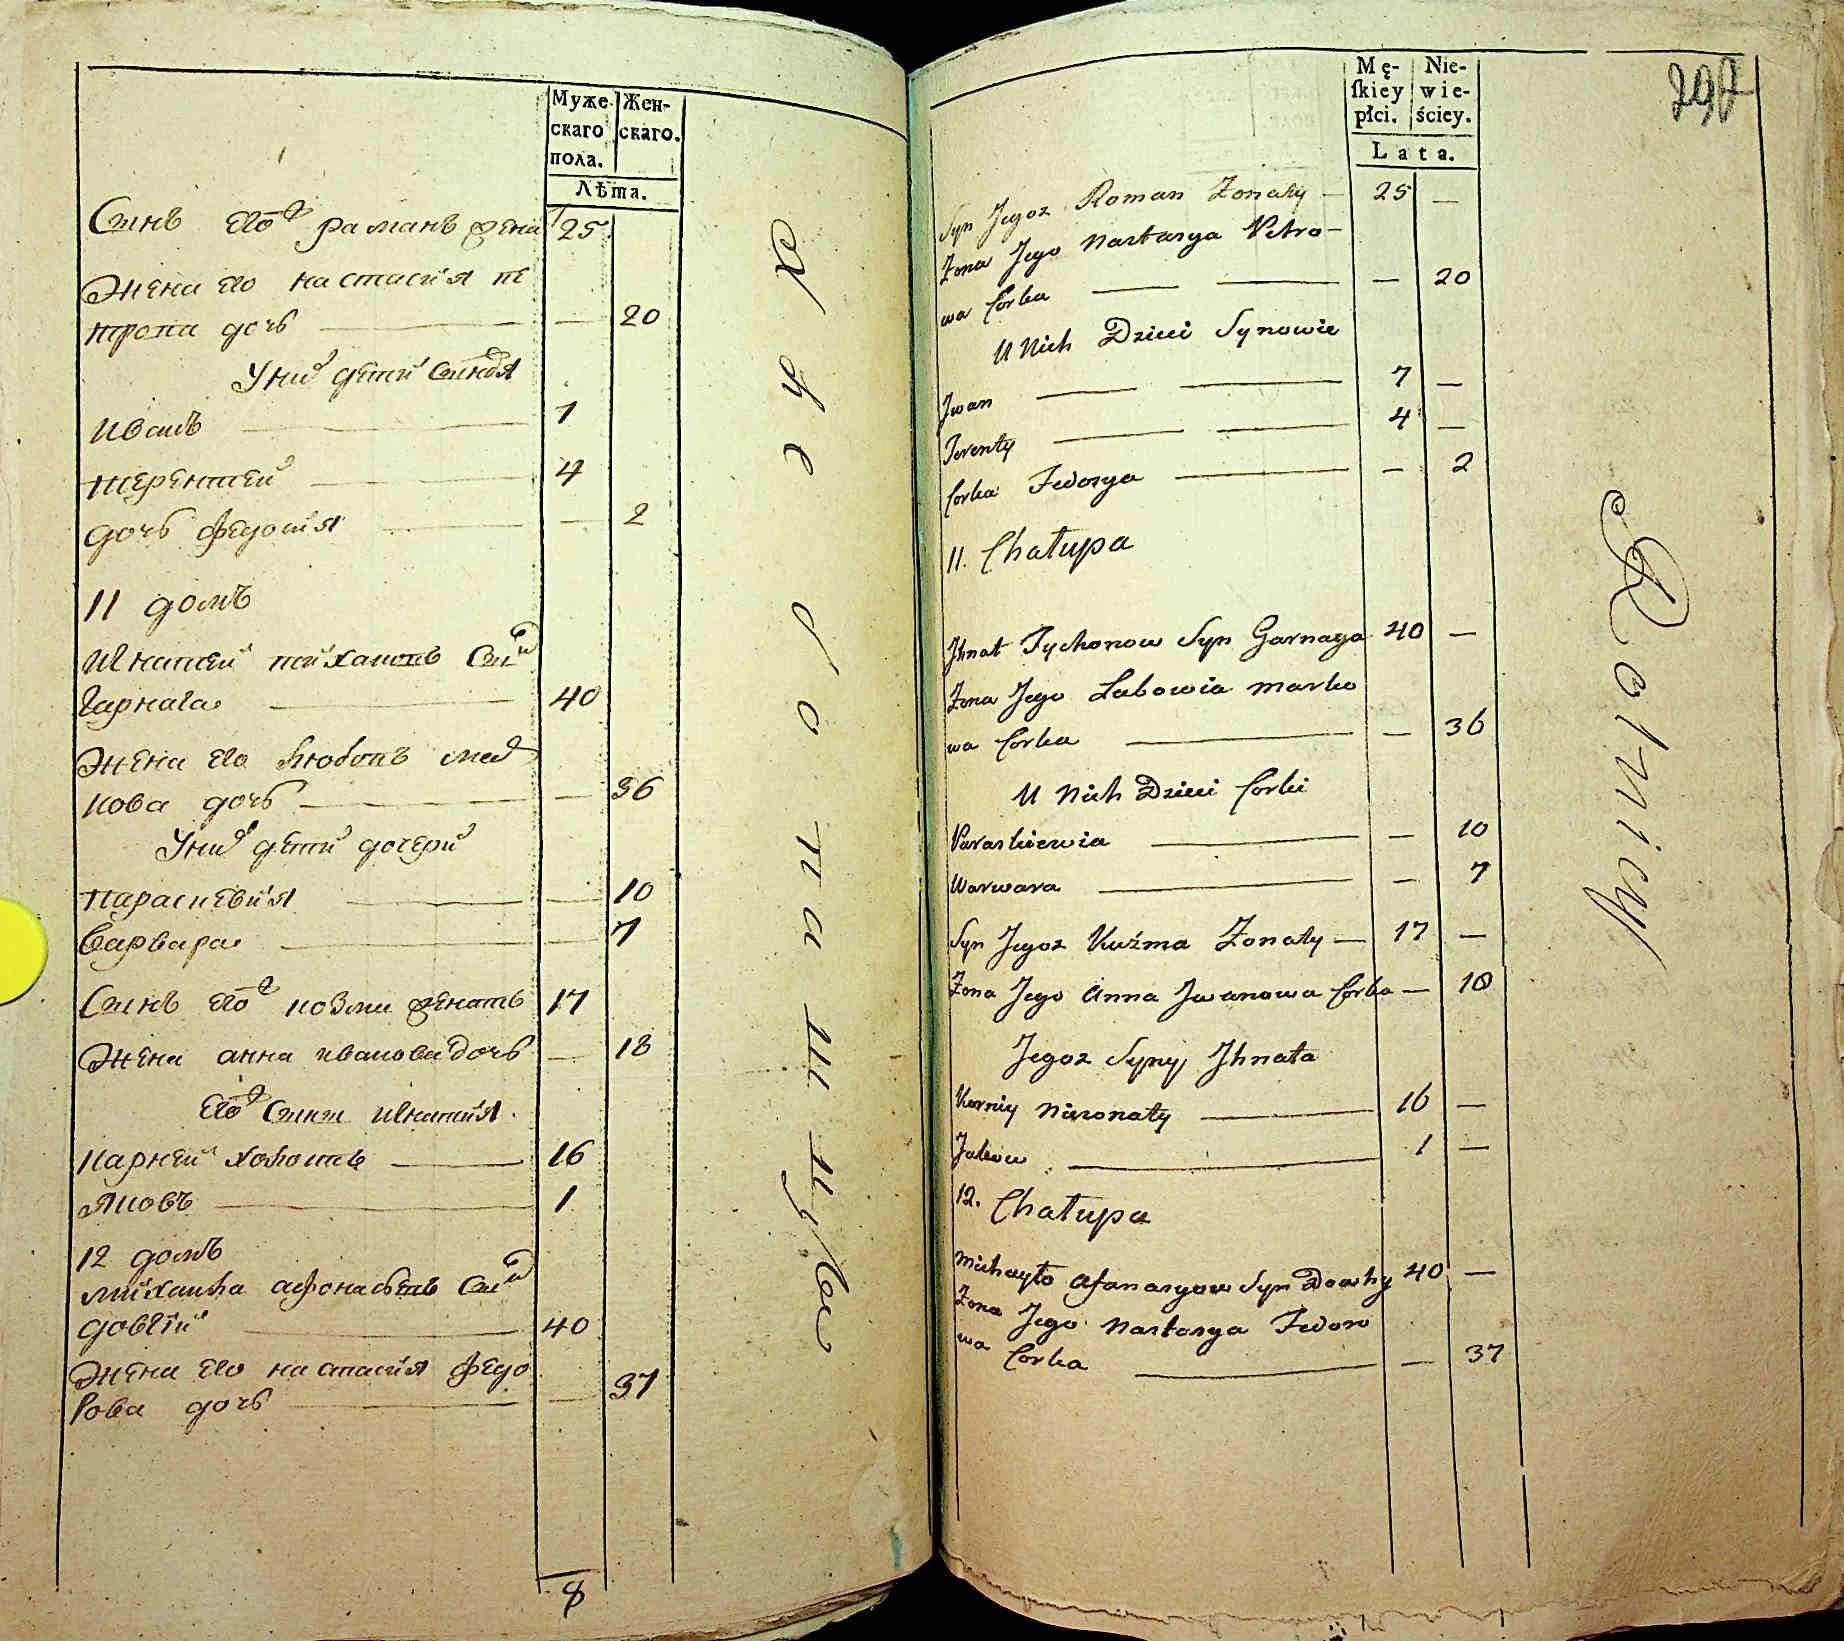 Муже-
скаго
пола.
Жен-
скаго.
Лѣта.
Сынъ его романъ жена 25
Жена его настасия пе
трова дочъ — 20
Уних дети синовя
Иванъ 7
терентей 4
дочь федосия — 2
11 домъ
Игнатей тихановъ син
гарнага 40
Жена его любовъ мар
кова дочь — 36
Уних дети дочери
параскевия — 10
варвара — 7
Синъ его козма женатъ 17
Жена анна иванова дочь — 18
Его сини игнатия
карней холостъ 16
яковъ 1
12 домъ
михаила афонасьевъ син
довгий 40
Жена его настасия федо
рова дочь — 37
8
Mę-
ſkiey
płci.
Nie-
wie-
ściey.
Lata.
297
Syn Jegoz Roman Zonaty — 25 —
Zona Jego Nastasya Petro-
wa Corka — 20
U Nich Dzieci Synowie
Jwan 7 —
Terenty 4 —
Corka Fedosya — 2
11. Chałupa
Jhnat Tychonow Syn Garnaga 40 —
Zona Jego Lubowia Marko
wa Corka — 36
U Nich Dzieci Corki
Paraskiewia — 10
Warwara — 7
Syn Jegoz Kuźma Zonaty — 17 —
Zona Jego Anna Jwanowa Corka — 18
Jegoz Syny Jhnata
Korniy Niezonaty 16 —
Jakow 1 —
12. Chałupa
Michayło Afanasyow Syn Dowhy 40 —
Zona Jego Nastasya Fedoro
wa Corka — 37
Rolnicy